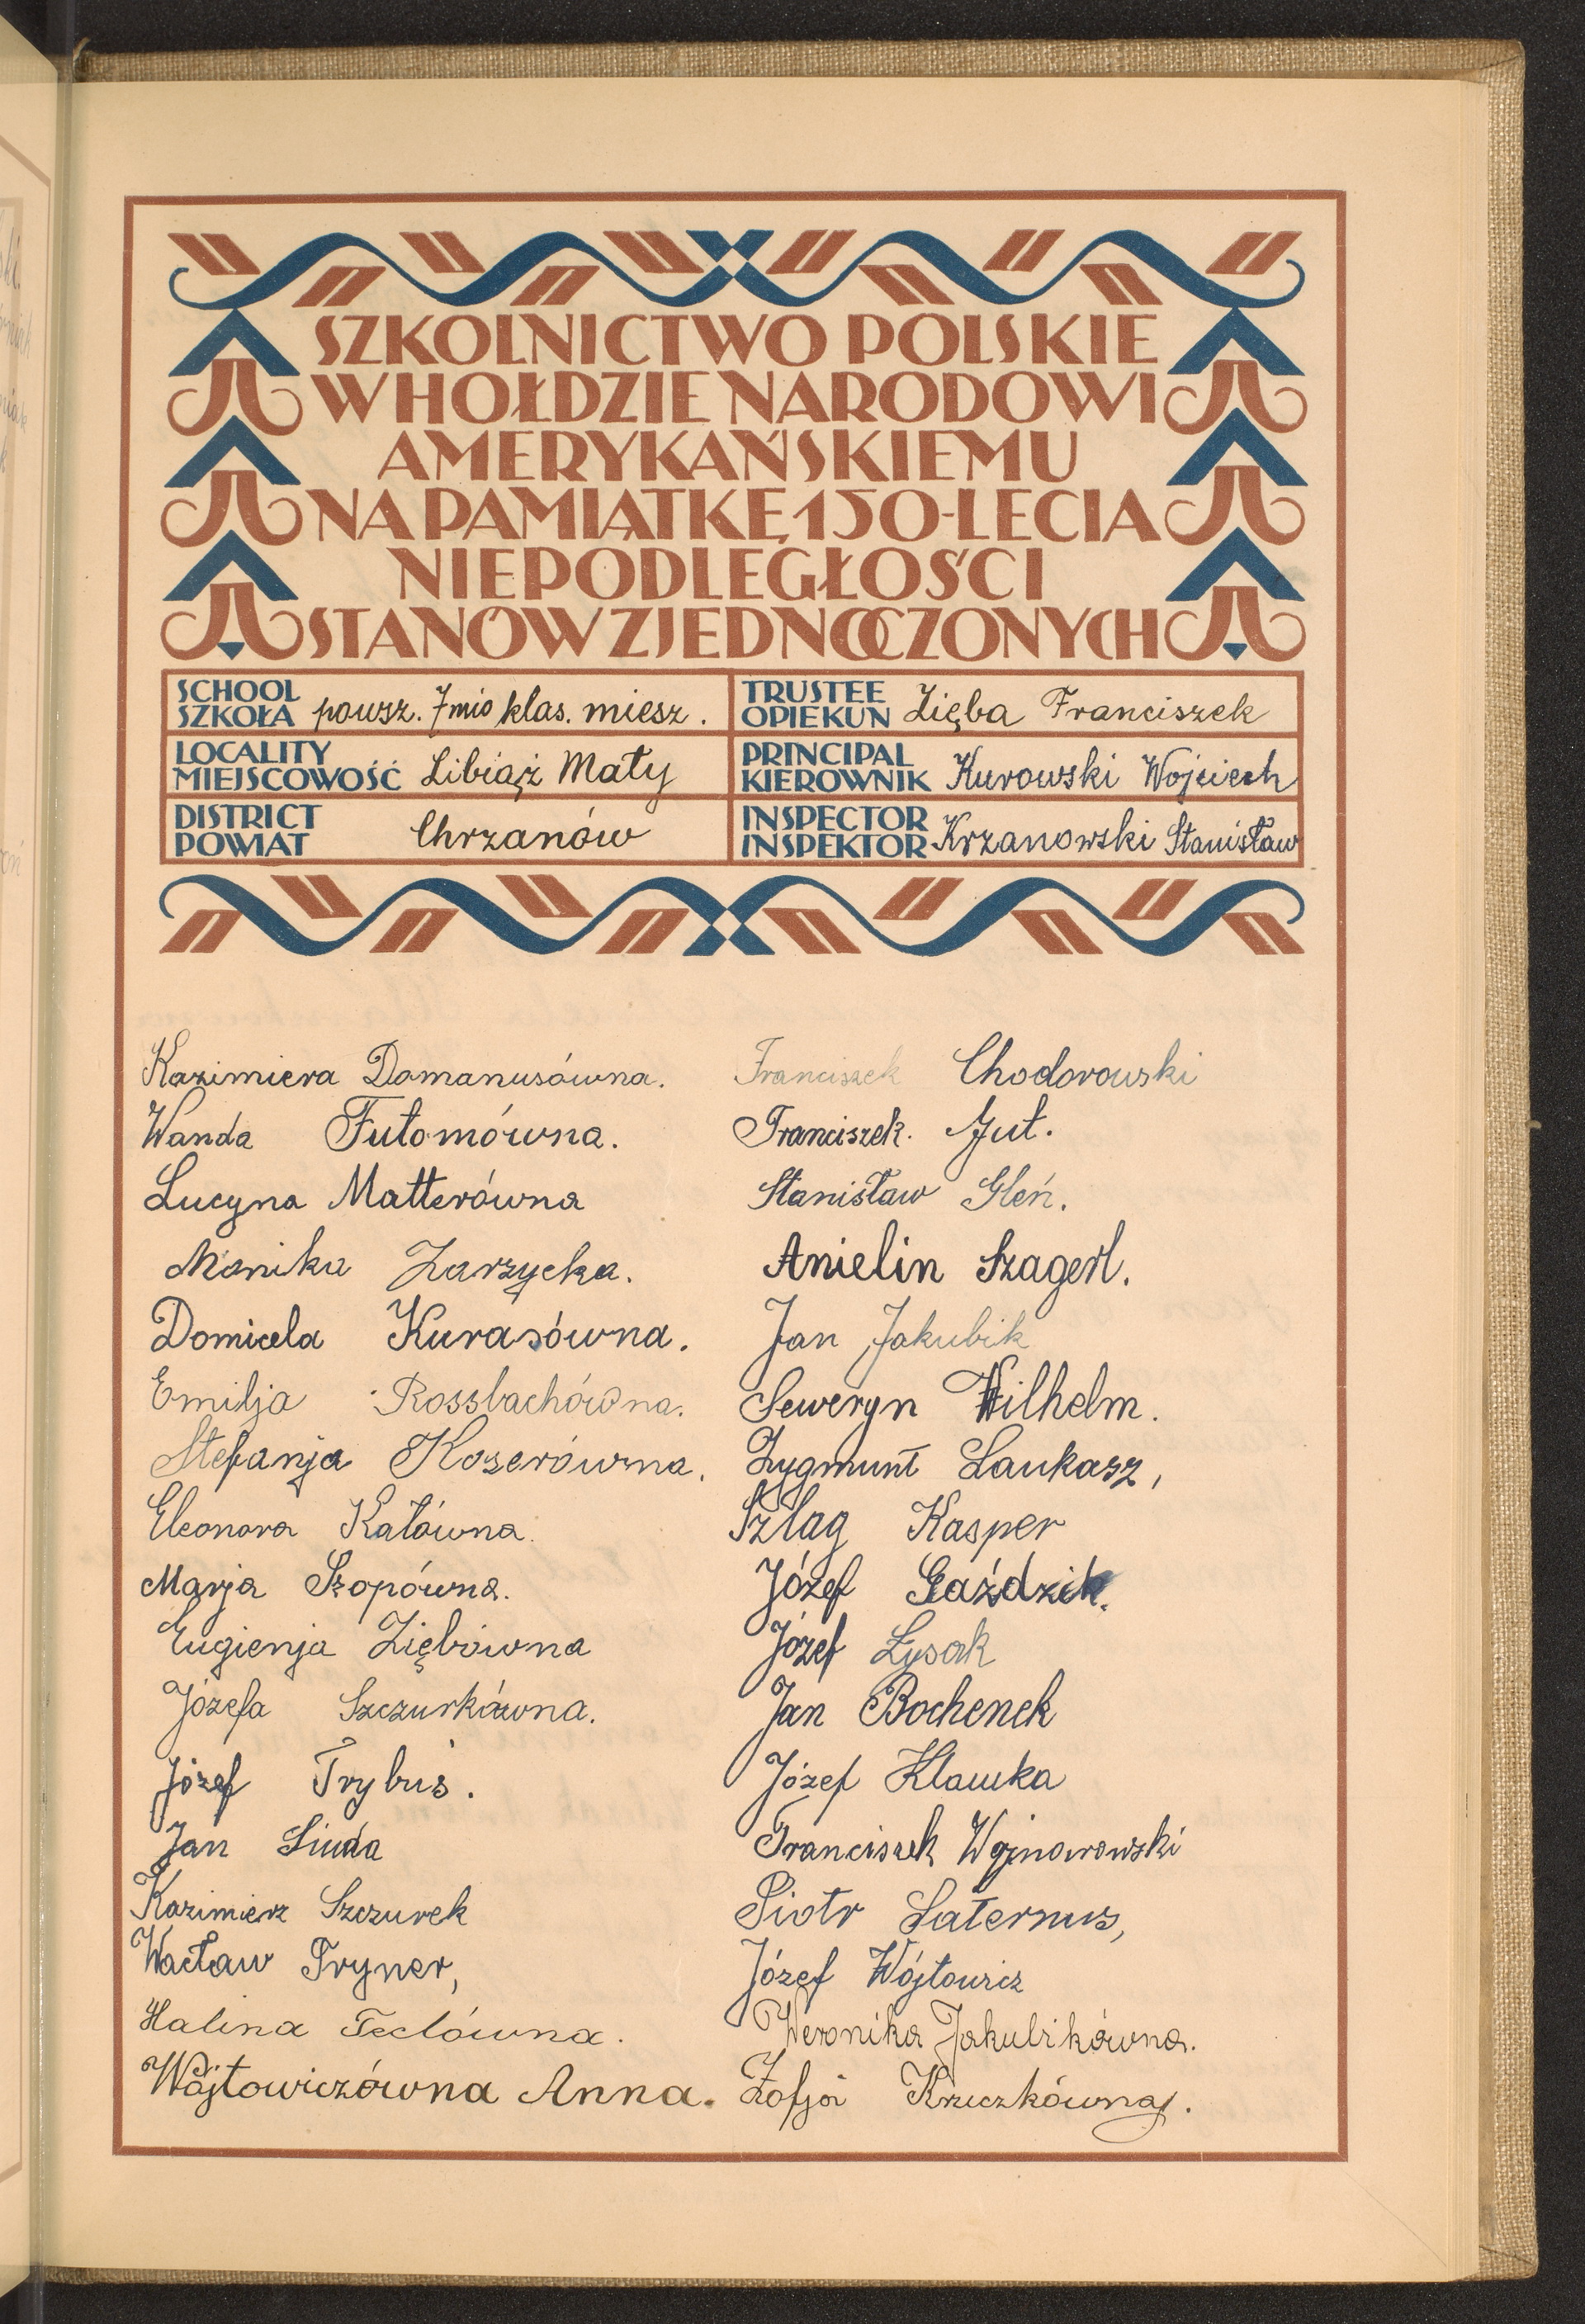 SZKOLNICTWO POLSKIE
W HOŁDZIE NARODOWI
AMERYKAŃSKIEMU
NA PAMIĄTKĘ 150-LECIA
NIEPODLEGŁOŚCI
STANÓW ZJEDNOCZONYCH
SCHOOL
SZKOŁA powsz. 7mio klas. miesz.
TRUSTEE
OPIEKUN Zięba Franciszek
LOCALITY
MIEJSCOWOŚĆ Libiąż Mały
PRINCIPAL
KIEROWNIK Kurowski Wojciech
DISTRICT
POWIAT Chrzanów
INSPECTOR
INSPEKTOR Krzanowski Stanisław
Kazimiera Domanusówna.
Wanda Futomówna.
Lucyna Matterówna
Monika Zarzycka.
Domicela Kurasówna.
Emilja Rossbachówna.
Stefanja Kozerówna.
Eleonora Katówna.
Marja Szopówna.
Eugienja Ziębówna
Józefa Szczurkówna.
Józef Trybuś.
Jan Liuda
Kazimierz Szczurek
Wacław Fryner,
Halina Teclówna.
Wójtowiczówna Anna.
Franciszek Chodorowski
Franciszek. Jut.
Stanisław Gleń.
Anielin Szagerl.
Jan Jakubik
Seweryn Wilhelm.
Zygmunt Laukasz,
Szlag Kasper
Józef Gaździk.
Józef Łysak
Jan Bochenek
Józef Klamka
Franciszek Wojnarowski
Piotr Saternus,
Józef Wójtowicz
Weronika Jakubikówna.
Zofja Kruczkówna.